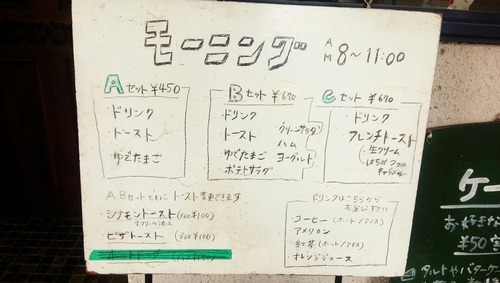 モーニング AM 8~11:00
Aセット ¥450
・ドリンク
・トースト
・ゆでたまご
Bセット ¥670
・ドリンク
・トースト
・ゆでたまご
・ポテトサラダ
グリーンサラダ
ハム
ヨーグルト
Cセット ¥670
・ドリンク
フレンチトースト
・生クリーム
・はちみつ
A・Bセットともに トースト変更できます
シナモントースト (プラス¥100)
ピザトースト (プラス¥100)
ドリンクはこちらから
お选び下さい
コーヒー (ホット/アイス)
アメリカン
紅茶 (ホット/アイス)
オレンジジュース
ケー
お好きな
¥50
タルトやバターケー